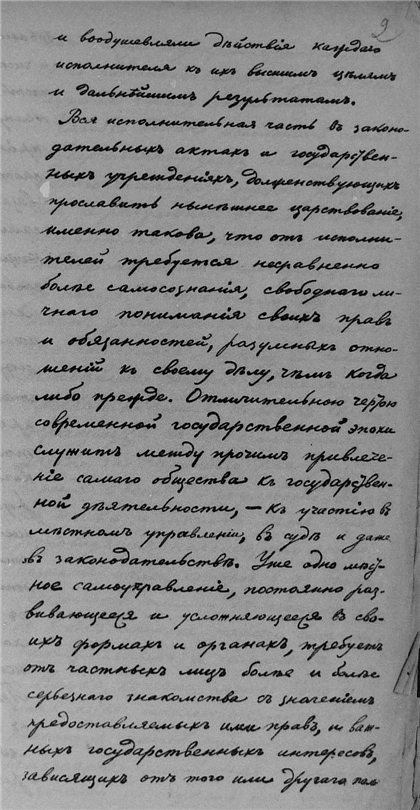 2
и воодушевляли дѣйствія каждаго
исполнителя къ ихъ высшимъ цѣлямъ
и дальнѣйшимъ результатамъ.
Вся исполнительная часть въ законо-
дательныхъ актахъ и государствен-
ныхъ учрежденіяхъ, долженствующихъ
прославить нынѣшнее царствованіе,
именно такова, что отъ исполни-
телей требуется несравненно
болѣе самосознанія, свободнаго ли-
чнаго пониманія своихъ правъ
и обязанностей, разумныхъ отно-
шеній къ своему дѣлу, чѣмъ когда
либо прежде. Отличительною чертою
современной государственной эпохи
служитъ между прочимъ привлече-
ніе самаго общества къ государствен-
ной дѣятельности, — къ участію въ
мѣстномъ управленіи, въ судѣ и даже
въ законодательствѣ. Уже одно мѣст-
ное самоуправленіе, постоянно раз-
вивающееся и усложняющееся въ сво-
ихъ формахъ и органахъ, требуетъ
отъ частныхъ лицъ болѣе и болѣе
серьезнаго знакомства съ значеніемъ
предоставляемыхъ ими правъ, и важ-
ныхъ государственныхъ интересовъ,
зависящихъ отъ того или другаго поль